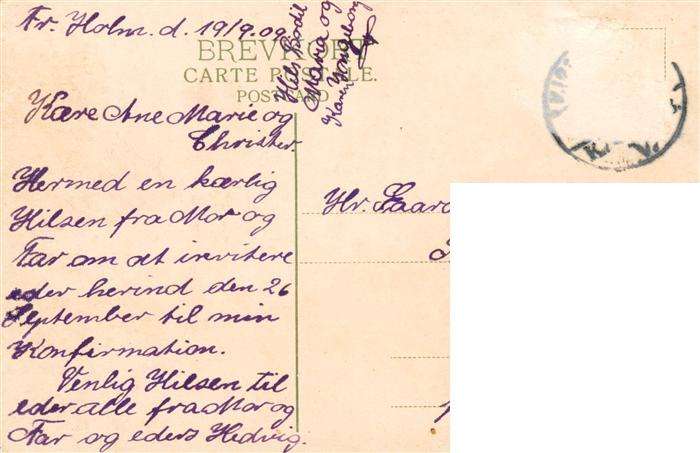 Fr. Holm. d. 19/9.09
Hils Bodil
Maria og
Karen Yongeborg
BREVKORT
CARTE POSTALE.
POSTCARD
Kære Ane Marie og
Christer.
Hermed en kærlig
Hilsen fra Mor og
Far om at invitere
eder herind den 26
September til min
Konfirmation.
Venlig Hilsen til
eder alle fra Mor og
Far og eders Hedvig.
Hr. Gaard